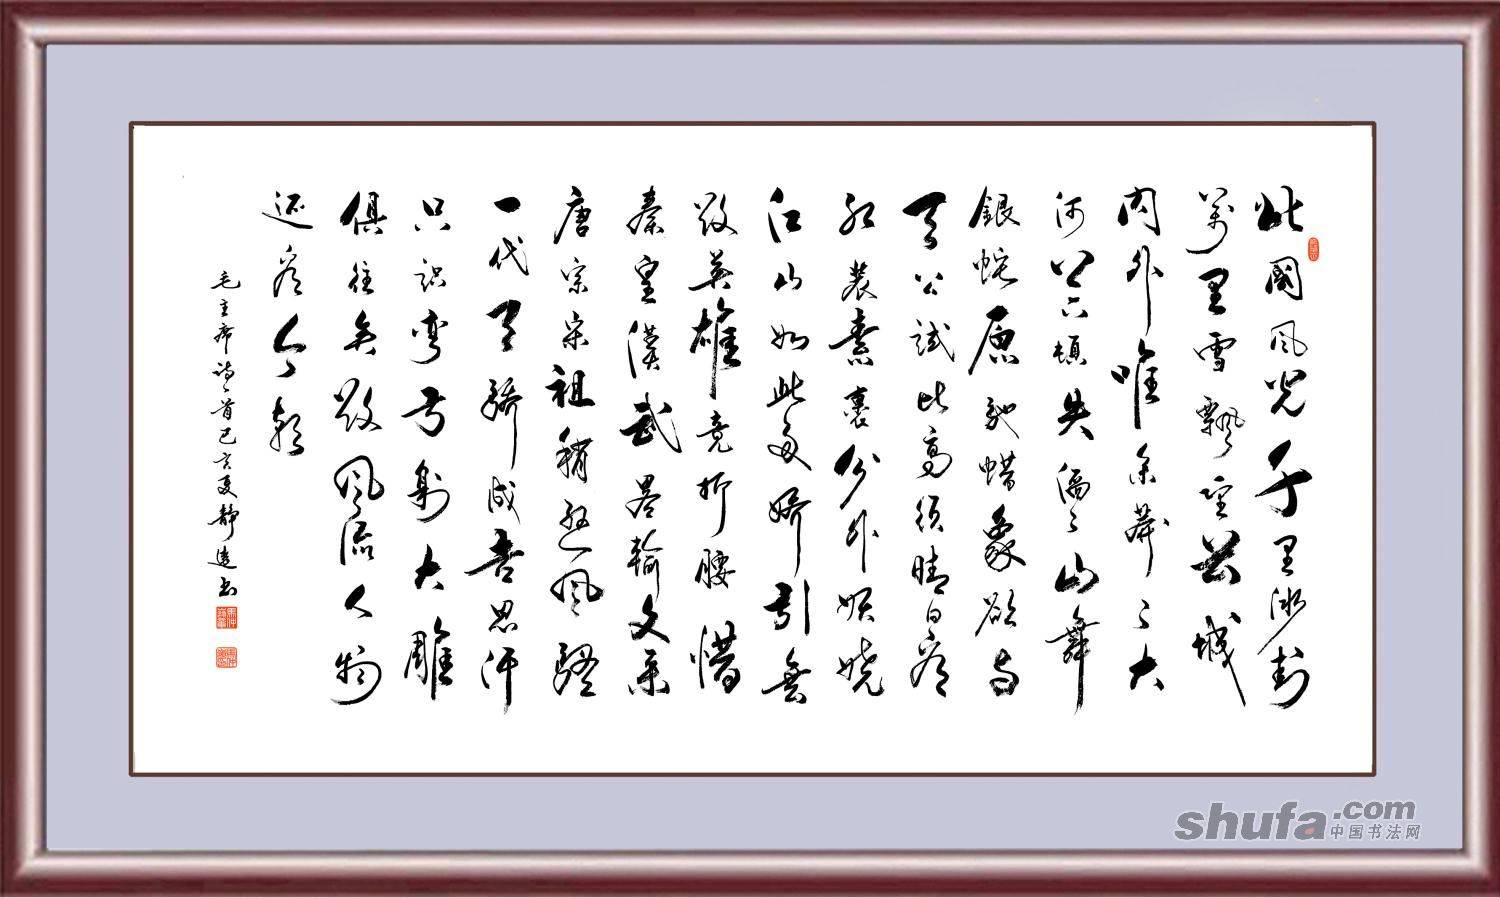 北國風光千里冰封
萬里雪飄望長城
内外唯余莽々大
河上下頓失滔々山舞
銀蛇原馳蜡象欲与
天公試比高須晴日看
红装素裹分外妖娆
江山如此多娇引無
数英雄竞折腰惜
秦皇漢武畧輸文采
唐宗宋祖稍遜風騷
一代天骄成吉思汗
只识弯弓射大雕
俱往矣数風流人物
还看今朝
毛主席诗一首己亥夏静遠书
shufa.com
中国书法网